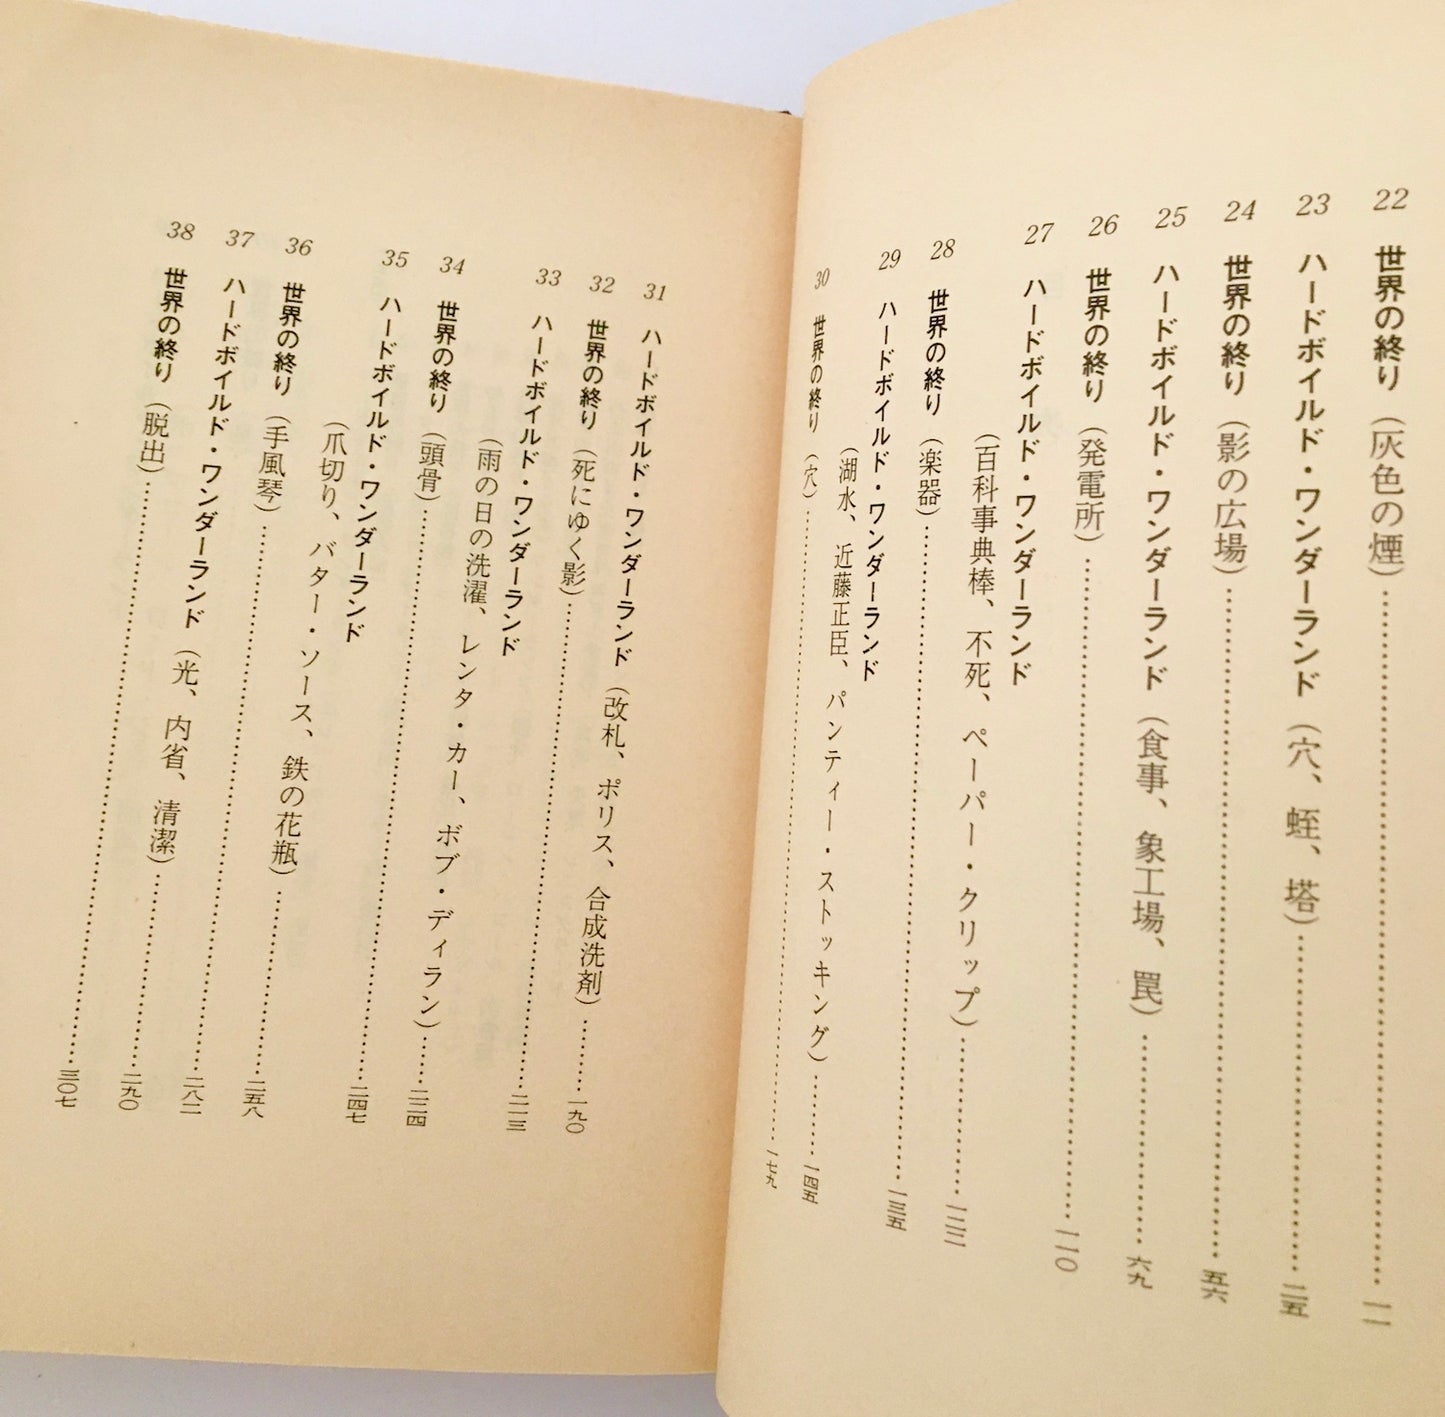 22 世界の終り（灰色の煙）……一一
23 ハードボイルド・ワンダーランド（穴、蛭、塔）……二五
24 世界の終り（影の広場）……五六
25 ハードボイルド・ワンダーランド（食事、象工場、罠）……六九
26 世界の終り（発電所）……一一〇
27 ハードボイルド・ワンダーランド
（百科事典棒、不死、ペーパー・クリップ）……一二二
28 世界の終り（楽器）……一三五
29 ハードボイルド・ワンダーランド
（湖水、近藤正臣、パンティー・ストッキング）……一四五
30 世界の終り（穴）……一七九
31 ハードボイルド・ワンダーランド（改札、ポリス、合成洗剤）……一九〇
32 世界の終り（死にゆく影）……二一三
33 ハードボイルド・ワンダーランド
（雨の日の洗濯、レンタ・カー、ボブ・ディラン）……二二四
34 世界の終り（頭骨）……二四七
35 ハードボイルド・ワンダーランド
（爪切り、バター・ソース、鉄の花瓶）……二五八
36 世界の終り（手風琴）……二八二
37 ハードボイルド・ワンダーランド（光、内省、清潔）……二九〇
38 世界の終り（脱出）……三〇七